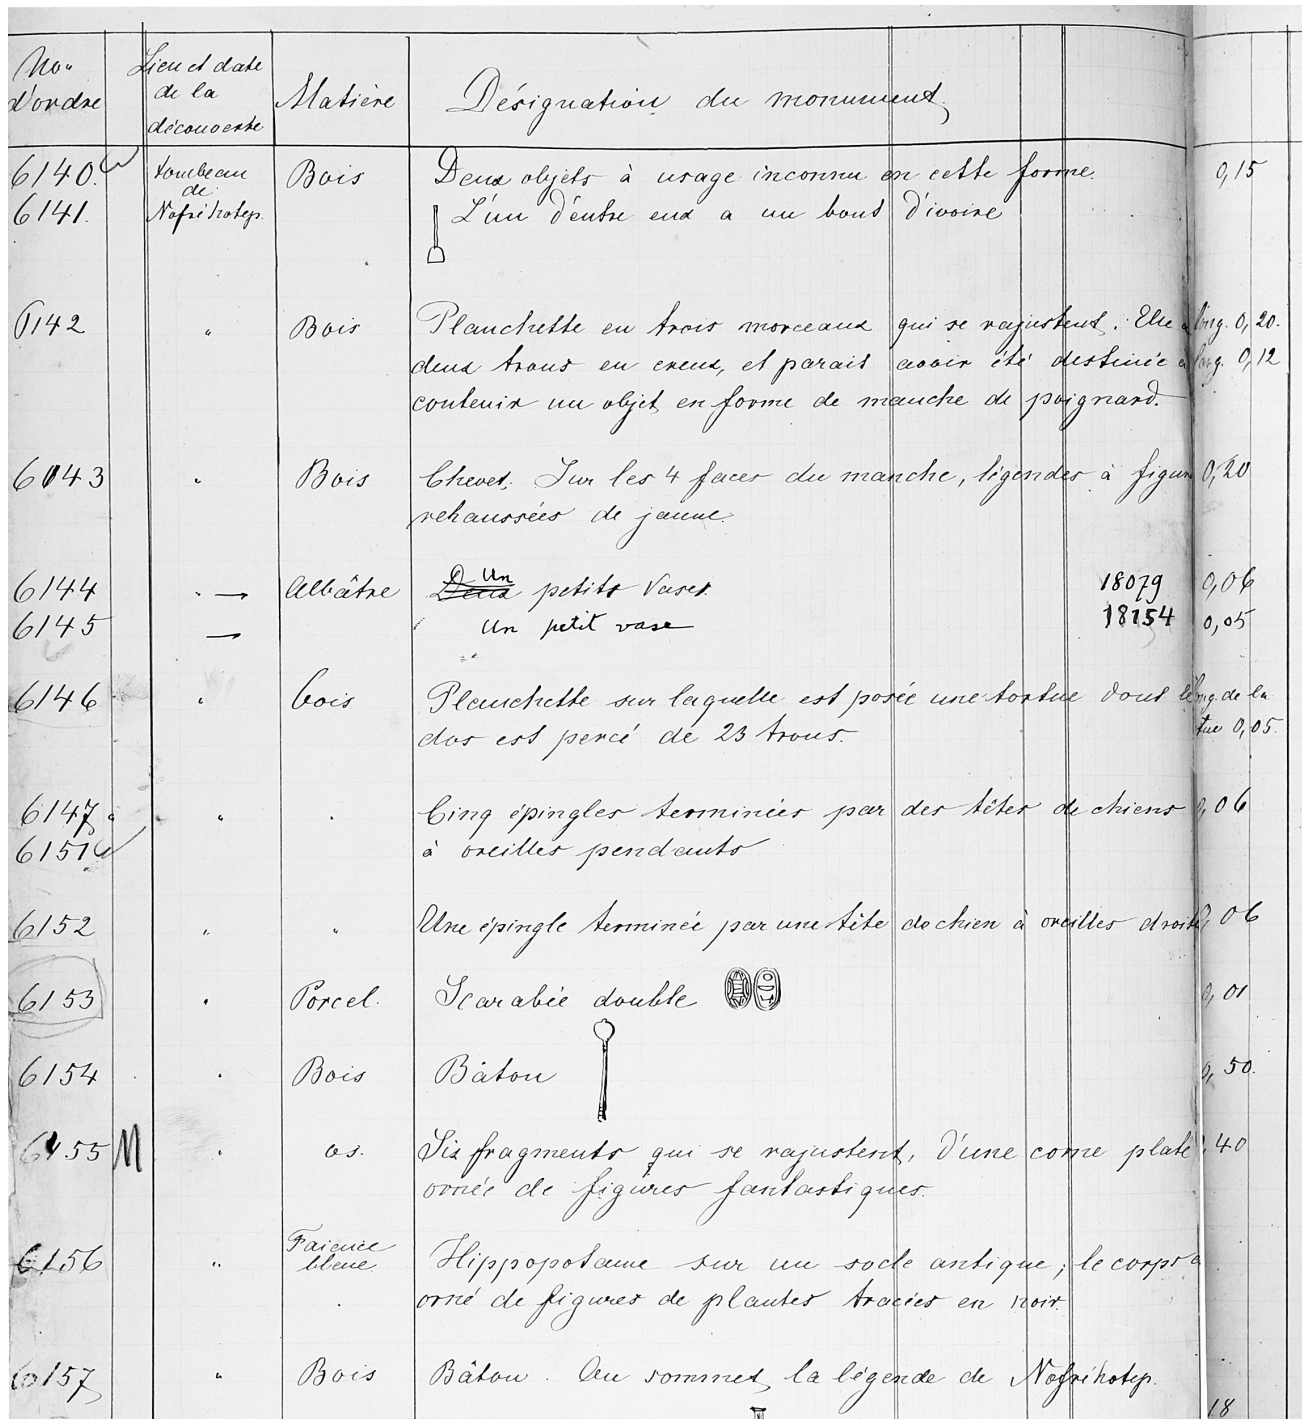 Nos Lieu et date
d'ordre de la Matière Désignation du monument.
découverte
6140. tombeau Bois Deux objets à usage inconnu en cette forme. 0,15
de
6141. Nofrihotep. L'un d'entre eux a un bout d'ivoire
6142 " Bois Planchette en trois morceaux qui se rajustent. Elle a long. 0,20.
deux trous en creux, et parait avoir été destinée à larg. 0,12
contenir un objet en forme de manche de poignard.
6143 " Bois Chevet. Sur les 4 faces du manche, légendes à figures 0,20
rehaussées de jaune.
6144 " Albâtre Deux Un petits vases 18079 0,06
6145 Un petit vase 18154 0,05
6146 " bois Planchette sur laquelle est posée une tortue dont le long. de la
dos est percé de 23 trous. tue 0,05.
6147 à " " Cinq épingles terminées par des têtes de chiens 0,06
6151 à oreilles pendants
6152 " " Une épingle terminée par une tête de chien à oreilles droites 0,06
6153 " Porcel. Scarabée double 0,01
6154 " Bois Bâton 0,50.
6155 M " os. Six fragments qui se rajustent, d'une corne plate 0,40
ornée de figures fantastiques.
6156 " Faience
bleue. Hippopotame sur un socle antique; le corps a
orné de figures de plantes tracées en noir.
6157 " Bois Bâton. Au sommet, la légende de Nofrihotep.
18